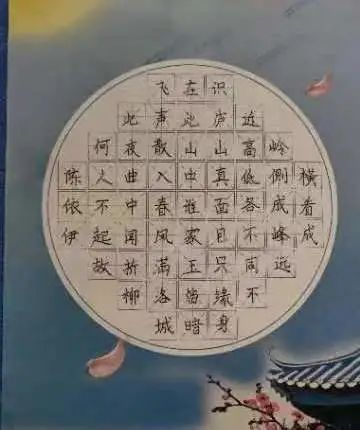 横看成
岭侧成峰远
近高低各不同不
识庐山真面目只缘身
在此山中谁家玉笛暗
飞声散入春风满洛城
此夜曲中闻折柳
何人不起故
陈依伊